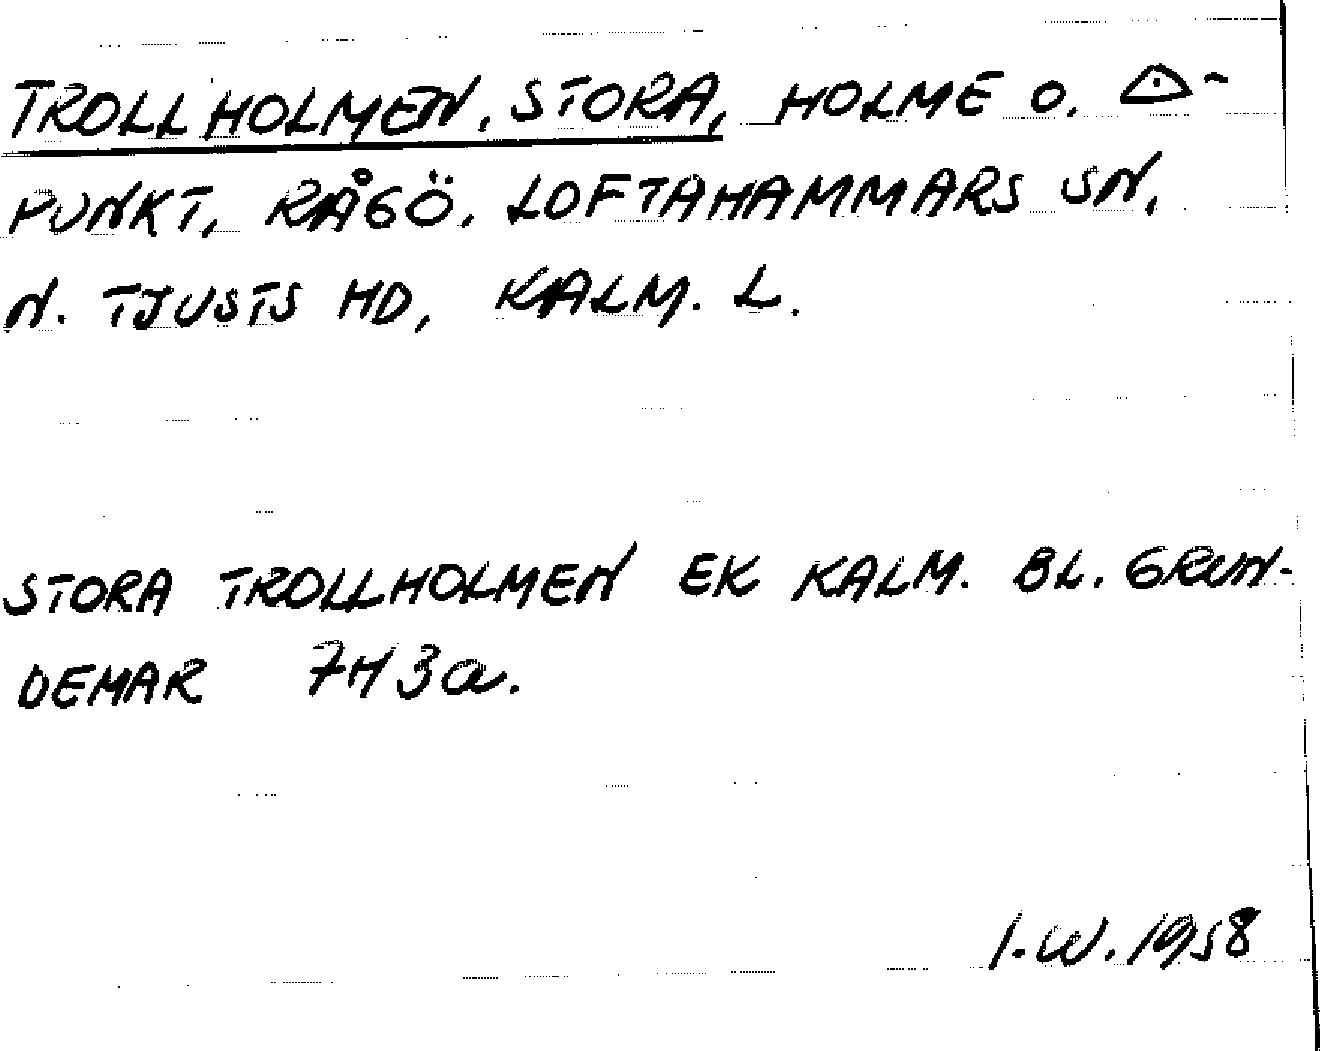 TROLLHOLMEN, STORA, HOLME O. △-
PUNKT, RÅGÖ, LOFTAHAMMARS SN,
N. TJUSTS HD, KALM. L.
STORA TROLLHOLMEN EK KALM. BL. GRUN-
DEMAR 7H3a.
I.W. 1958